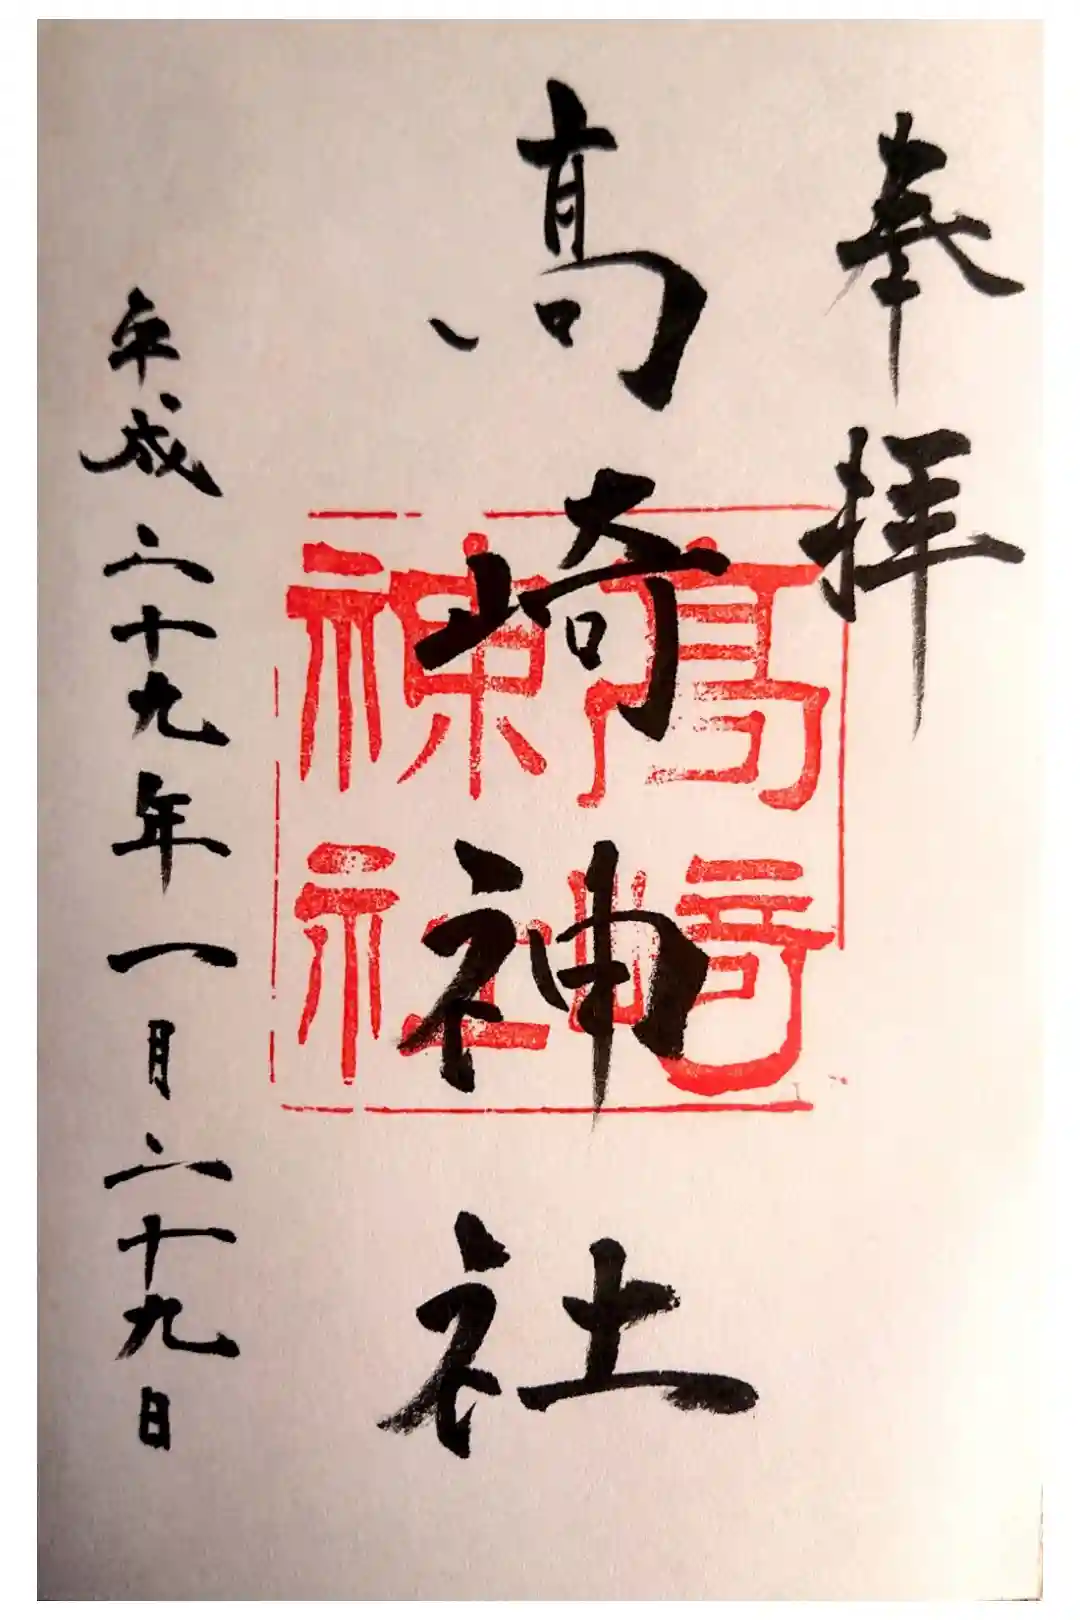 奉拝
髙崎神社
髙崎
神社
平成二十九年一月二十九日